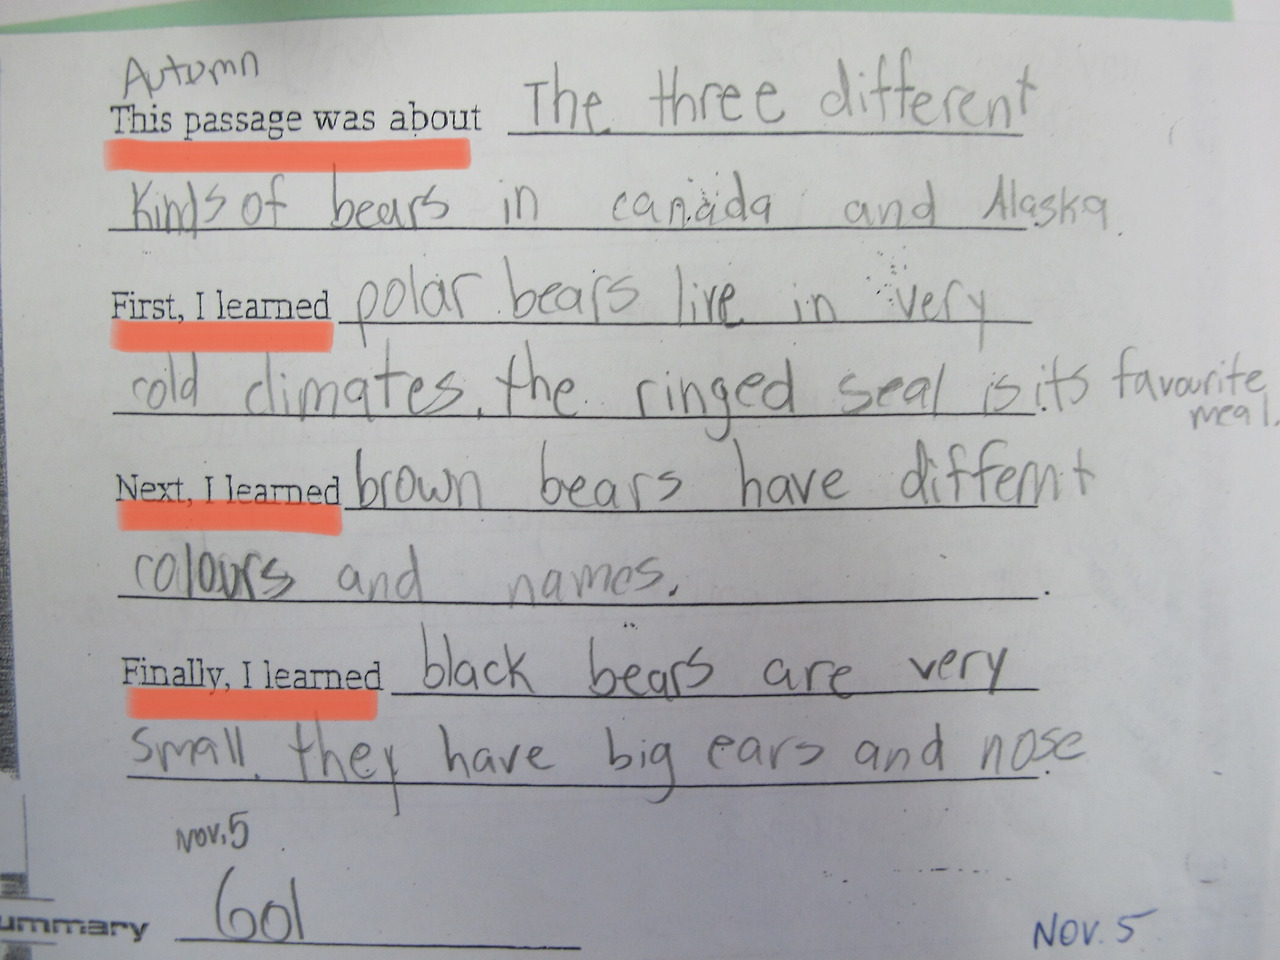 Autumn
This passage was about The three different
kinds of bears in canada and Alaska.
First, I learned polar bears live in very
cold climates. the ringed seal is its favourite
meal.
Next, I learned brown bears have differnt
colours and names.
Finally, I learned black bears are very
small. they have big ears and nose
Nov. 5
ummary 601
Nov. 5